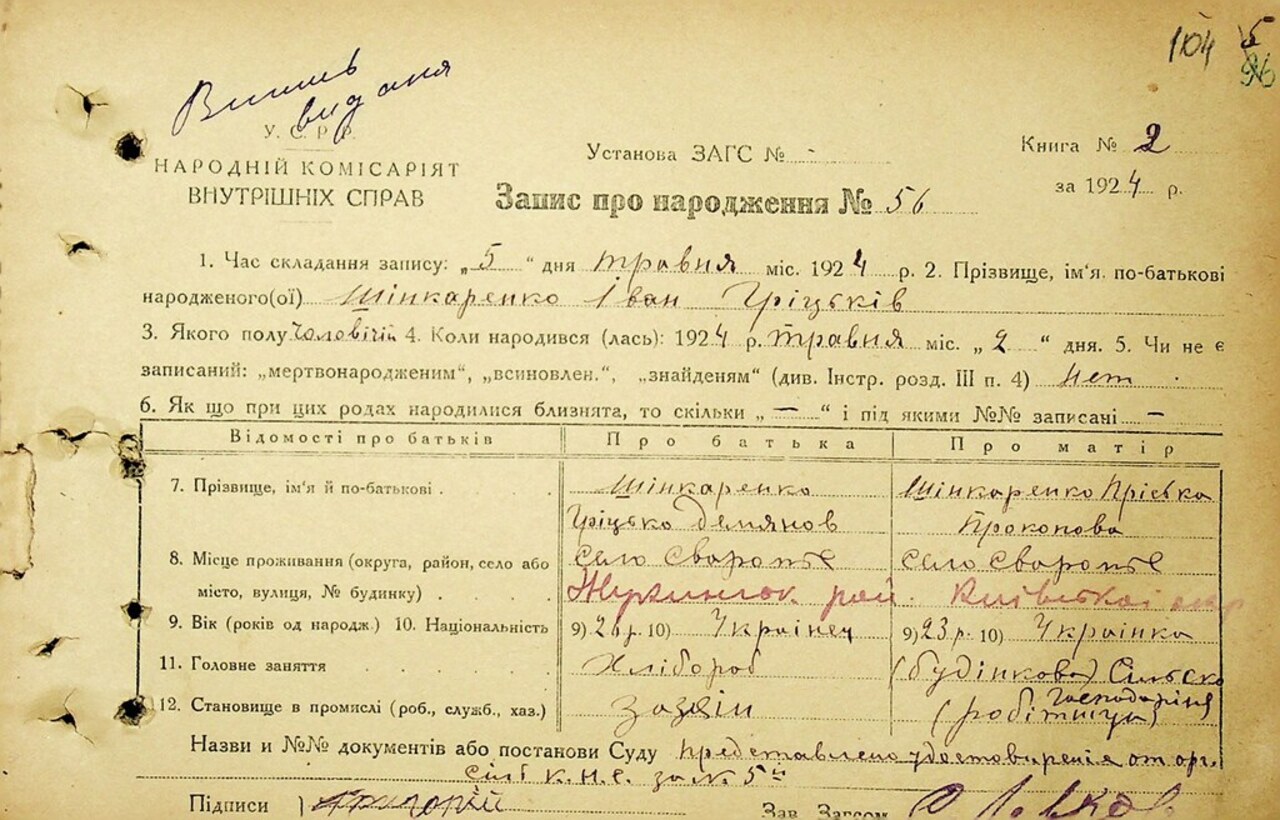 104 5
96
видання
У. С. Р. Р.
НАРОДНІЙ КОМІСАРІЯТ
ВНУТРІШНІХ СПРАВ
Установа ЗАГС № -
Книга № 2
за 1924 р.
Запис про народження № 56
1. Час складання запису: „5“ дня травня міс. 1924 р. 2. Прізвище, ім'я по-батькові
народженого(ої) Шінкаренко Іван Гріцьків
3. Якого полу чоловічій 4. Коли народився (лась): 1924 р. травня міс. „2“ дня. 5. Чи не є
записаний: „мертвонародженим“, „всиновлен.“, „знайденям“ (див. Інстр. розд. III п. 4) нет
6. Як що при цих родах народилися близнята, то скільки „—“ і під якими №№ записані —
Відомості про батьків Про батька Про матір
7. Прізвище, ім'я й по-батькові Шінкаренко Шінкаренко Пріська
Гріцько Демянов Прокопова
8. Місце проживання (округа, район, село або село Сваромье село Сваромье
місто, вулиця, № будинку) рай. Київської
9. Вік (років од народж.) 10. Національність 9) 26 р. 10) Українец 9) 23 р. 10) Українка
11. Головне заняття Хлібороб (будінкова) Сільско
Господаріня
12. Становище в промяслі (роб., служб., хаз.) (робітниця)
Назви и №№ документів або постанови Суду представлено удостоверенія от орг.
сілб К.Н.С. за № 5
Підписи Григорій Зав. Загсом